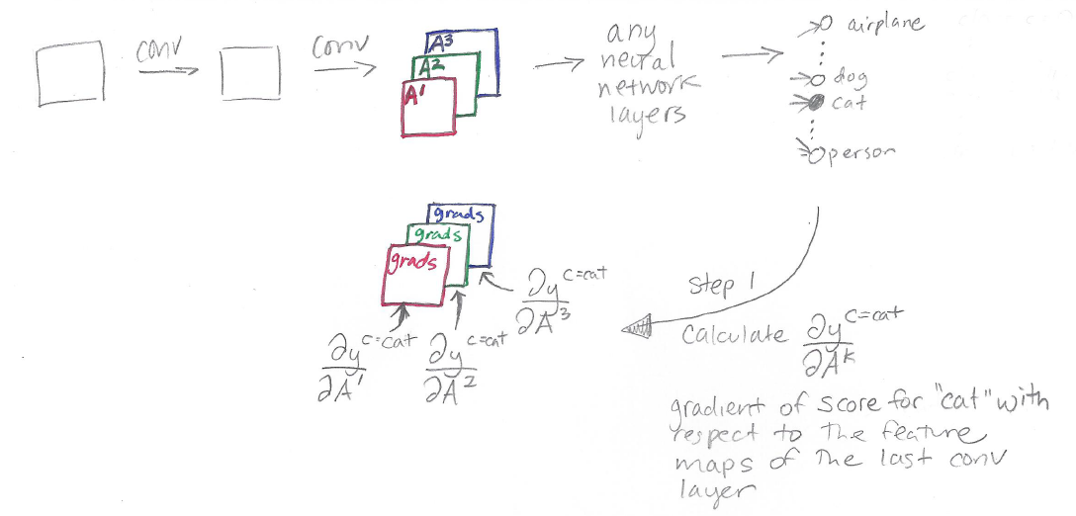 conv
conv
A³
A²
A¹
any
neural
network
layers
airplane
dog
cat
person
grads
grads
grads
∂y^c=cat/∂A¹
∂y^c=cat/∂A²
∂y^c=cat/∂A³
Step 1
Calculate ∂y^c=cat/∂A^k
gradient of score for "cat" with
respect to the feature
maps of the last conv
layer